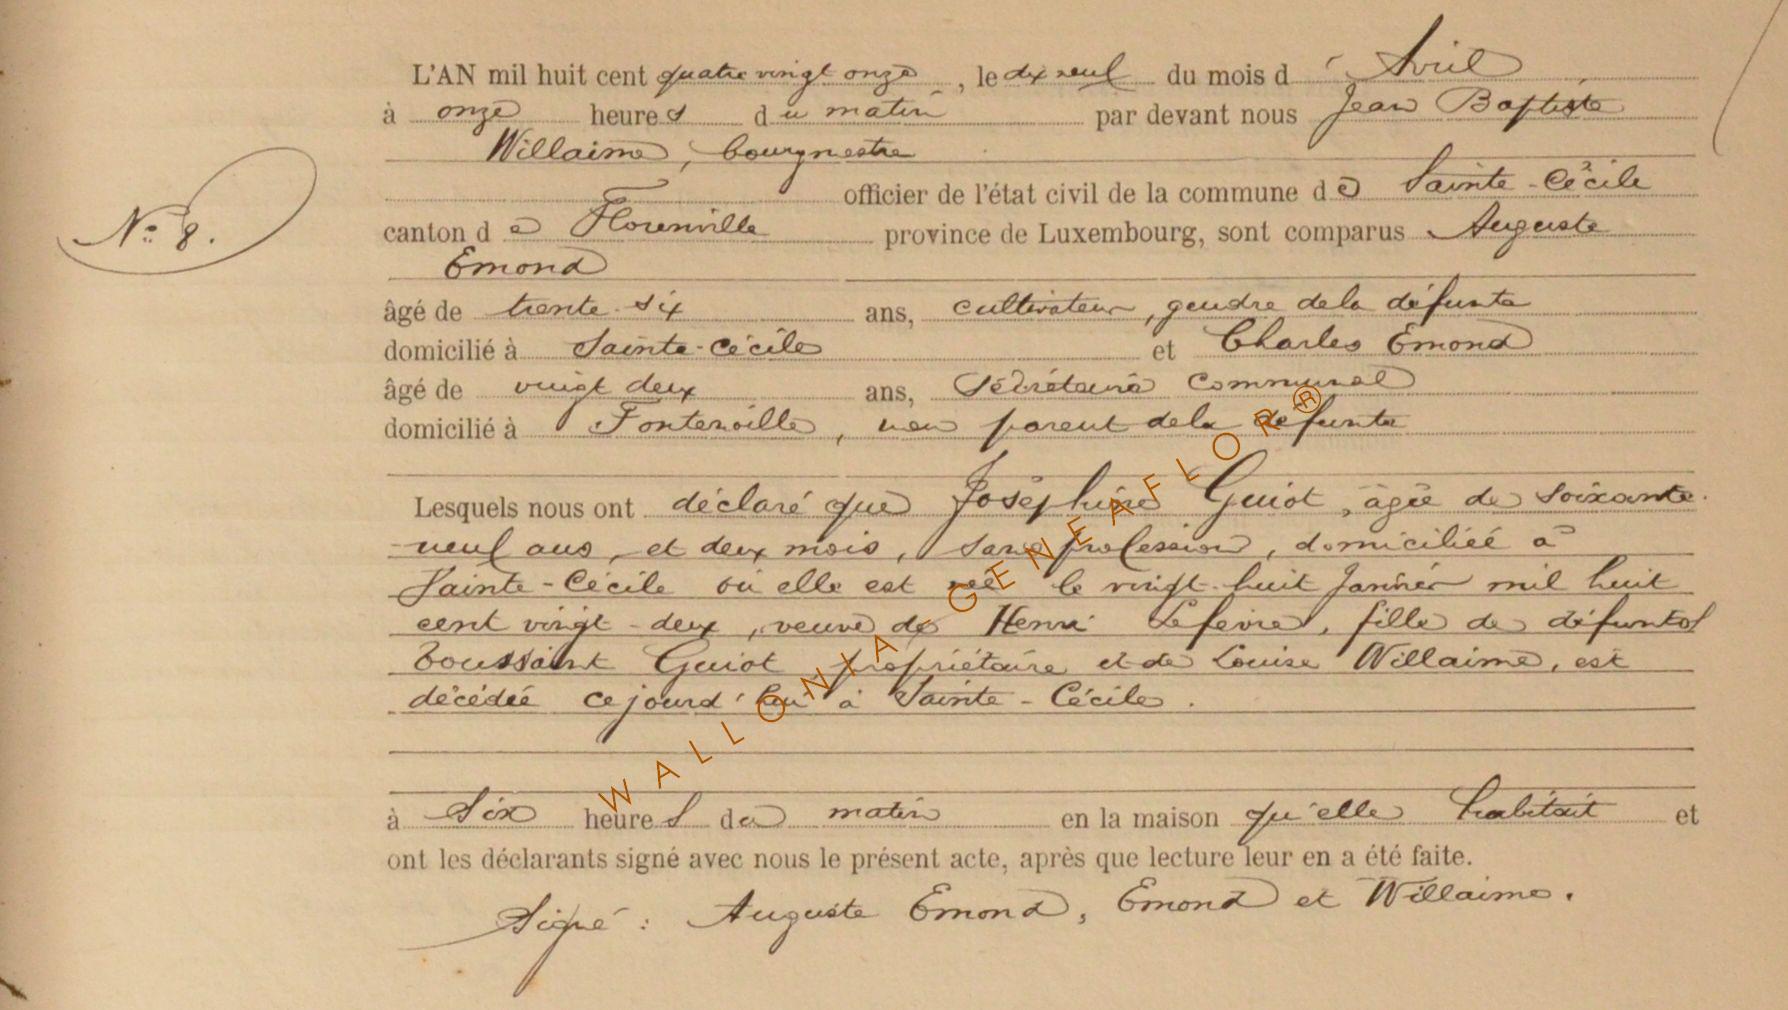 L'AN mil huit cent quatre vingt onze, le dix neuf du mois d'Avril
à onze heures du matin par devant nous Jean Baptiste
Willaime, bourgmestre
officier de l'état civil de la commune de Sainte-Cécile
N° 8.
canton de Florenville province de Luxembourg, sont comparus Auguste
Emond
âgé de trente-six ans, cultivateur, gendre de la défunte
domicilié à Sainte-Cécile et Charles Emond
âgé de vingt deux ans, Secrétaire communal
domicilié à Fontenoille, non parent de la défunte
Lesquels nous ont déclaré que Joséphine Guiot, âgée de soixante
neuf ans, et deux mois, sans profession, domiciliée à
Sainte-Cécile où elle est née le vingt-huit Janvier mil huit
cent vingt-deux, veuve de Henri Lefèvre, fille de défunts
Toussaint Guiot propriétaire et de Louise Willaime, est
décédée ce jourd'hui à Sainte-Cécile.
à Six heures du matin en la maison qu'elle habitait et
ont les déclarants signé avec nous le présent acte, après que lecture leur en a été faite.
Signé : Auguste Emond, Emond et Willaime.
WALLONIA-GENEAFLOR®